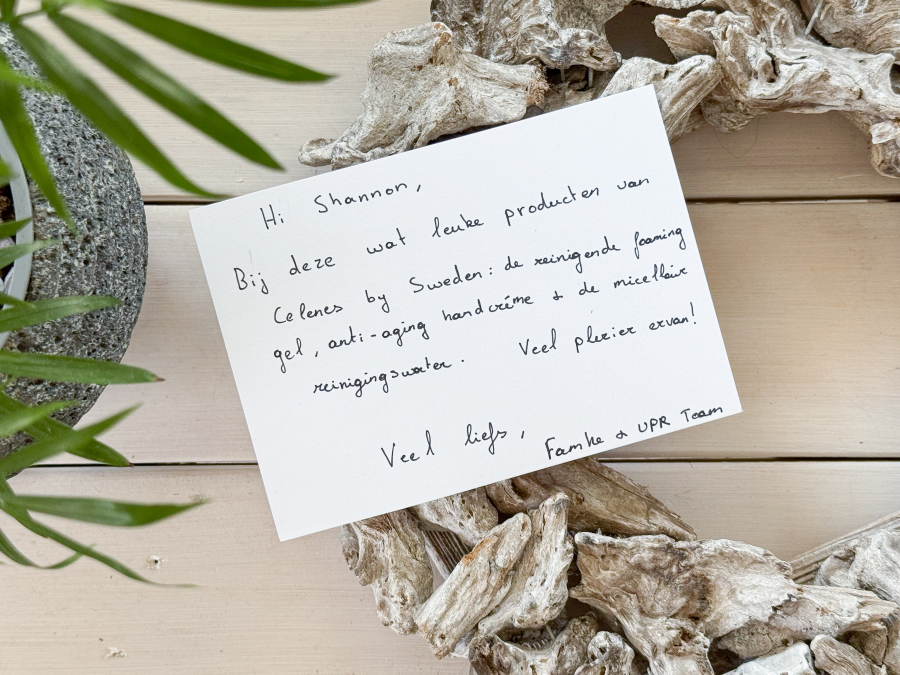 Hi Shannon,
Bij deze wat leuke producten van
Celenes by Sweden: de reinigende foaming
gel, anti-aging handcrème & de micellair
reinigingswater. Veel plezier ervan!
Veel liefs,
Famke & UPR Team